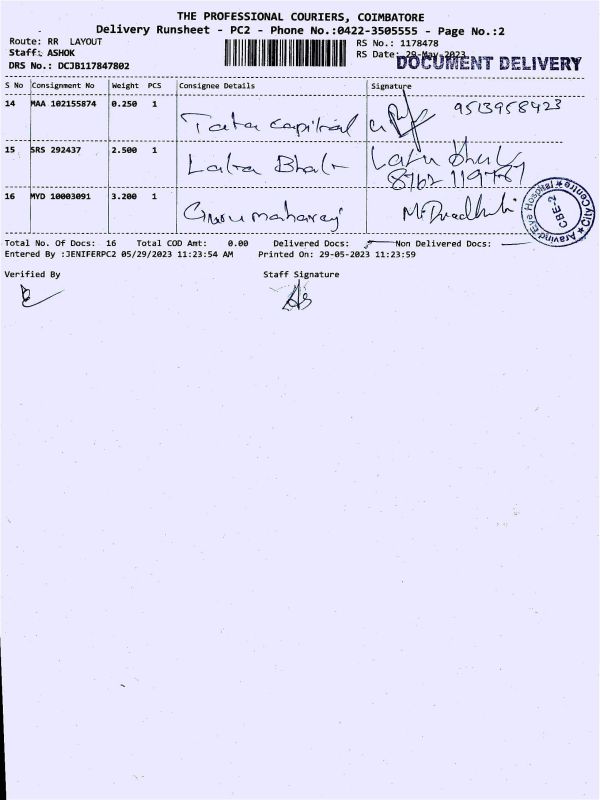 THE PROFESSIONAL COURIERS, COIMBATORE
Delivery Runsheet - PC2 - Phone No.:0422-3505555 - Page No.:2
Route: RR LAYOUT
RS No.: 1178478
Staff: ASHOK
RS Date: 29-May-2023
DOCUMENT DELIVERY
DRS No.: DCJB117847802
S No Consignment No Weight PCS Consignee Details Signature
14 MAA 102155874 0.250 1
Tata capital
9513958423
15 SRS 292437 2.500 1
Lata Bhat
16 MYD 10003091 3.200 1
Guru maharaj
Aravind Eye Hospital
City Centre
CBE-2
Total No. Of Docs: 16 Total COD Amt: 0.00 Delivered Docs: Non Delivered Docs:
Entered By :JENIFERPC2 05/29/2023 11:23:54 AM Printed On: 29-05-2023 11:23:59
Verified By Staff Signature